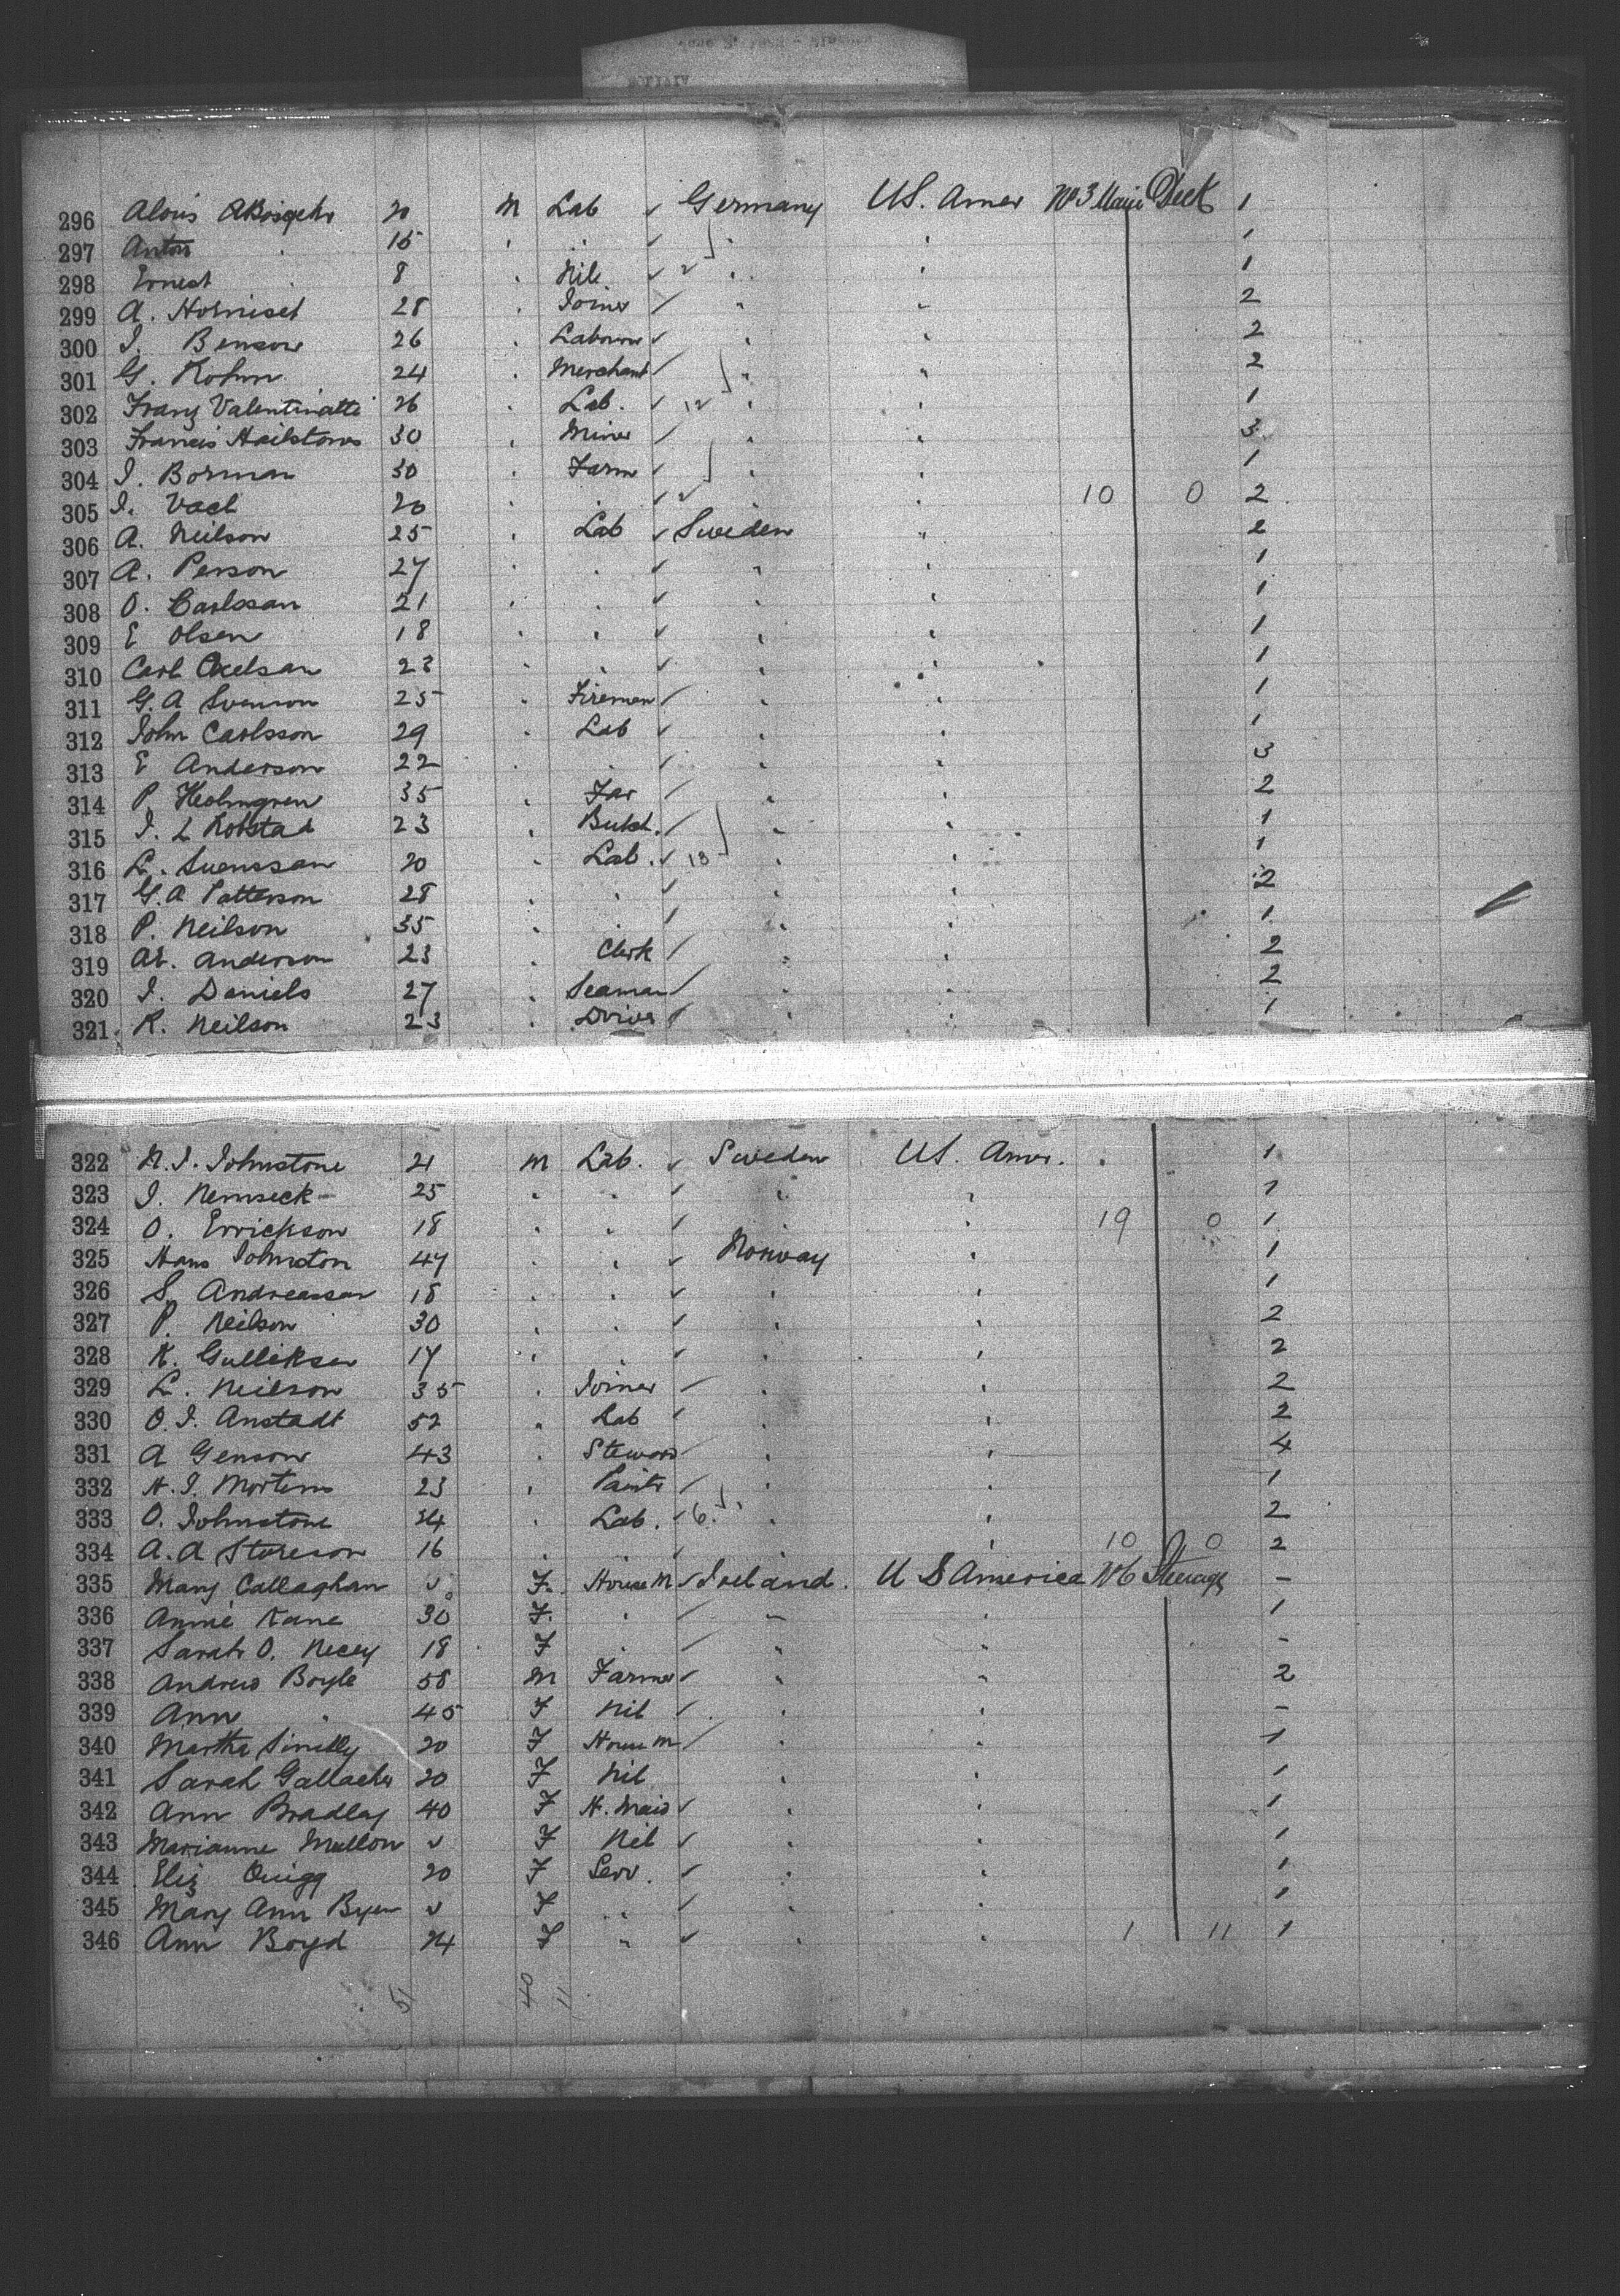 296 Alois 20 M Lab ✓ Germany US. Amer No 3 Main Deck 1
297 Anton 15 " " ✓ " " 1
298 Ernest 8 " Nil ✓ 2 " " 1
299 A. Hornisch 28 " Joiner / " " 2
300 J. Benson 26 " Labourer ✓ " " 2
301 G. Kohn 24 " Merchant / " " 2
302 Franz Valentinatti 26 " Lab. ✓ 12 " " 1
303 Francis Hailstones 30 " Miner / " " 3
304 J. Borman 30 " Farm ✓ " " 1
305 J. 20 " " ✓ 2 10 0 2
306 A. Neilson 25 " Lab ✓ Sweden " 2
307 A. Person 27 " " ✓ " " 1
308 O. Carlssan 21 " " ✓ " " 1
309 E Olsen 18 " " ✓ " " 1
310 Carl Axelsan 23 " " ✓ " " 1
311 G. A Svenson 25 " Fireman / " " 1
312 John Carlsson 29 " Lab ✓ " " 1
313 E Anderson 22 " " / " " 3
314 P. Holmgren 35 " Far / " " 2
315 J. L Robstad 23 " Butch. / " " 1
316 L. Svenssan 20 " Lab. ✓ 13 " " 1
317 G. A Patterson 28 " " ✓ " " 2
318 P. Neilson 35 " " / " " 1
319 Anderson 23 " Clerk / " " 2
320 J. Daniels 27 " Seaman / " " 2
321 K. Neilson 23 " Driver / 1
322 N. J. Johnstone 21 M Lab. ✓ Sweden US. Amer. " 1
323 J. Nemseck 25 " " ✓ " " 1
324 O. Errickson 18 " " / " 19 0 1
325 Hans Johnston 47 " " ✓ Norway " 1
326 S. Andreassan 18 " " ✓ " " 1
327 P. Neilson 30 " " ✓ " " 2
328 K. Gulliksen 17 " " ✓ " " 2
329 L. Neilson 35 " Joiner / " " 2
330 O. J. Anstadt 52 " Lab ✓ " " 2
331 A Genson 43 " Steward / " " 4
332 H. J. Mortens 23 " Paintr / " " 1
333 O. Johnstone 24 " Lab. / 6 " " 2
334 A. A Storeson 16 " " ✓ " 10 0 2
335 Mary Callaghan F. House M ✓ Ireland. U S America No 6 Steerage -
336 Annie Kane 30 F. " / " " 1
337 Sarah O. 18 F " / " " -
338 Andrew Boyle 58 M Farmer ✓ " " 2
339 Ann " 45 F Nil / " " -
340 Martha 20 F House M / " " 1
341 Sarah Gallacher 20 F Nil " " 1
342 Ann Bradley 40 F H. Maid ✓ " " 1
343 Marianne Mullon F Nil ✓ " " 1
344 Eliz Quigg 20 F Serv. ✓ " " 1
345 Mary Ann F " ✓ " " 1
346 Ann Boyd 24 F " ✓ " " 1 11 1
51 40 11